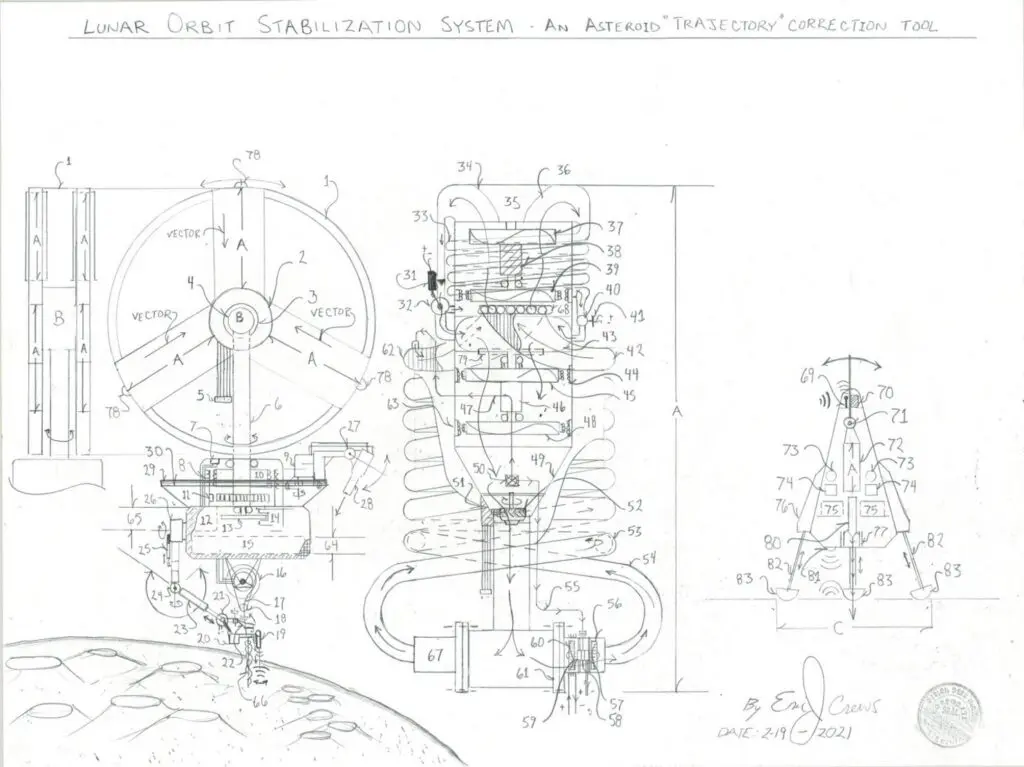 LUNAR ORBIT STABILIZATION SYSTEM - AN ASTEROID "TRAJECTORY" CORRECTION TOOL
1
78
1
VECTOR
A
2
4
3
B
B
A
A
A
A
VECTOR
VECTOR
A
A
78
78
5
6
7
27
30
8
9
10
29
28
26
11
12
13
14
65
15
64
25
16
24
21
17
18
23
20
19
22
66
34
36
35
33
37
38
31
39
32
40
68
41
43
62
79
42
44
63
45
47
46
48
50
49
51
52
53
54
55
56
60
67
61
57
59
58
A
69
70
71
73
72
73
74
A
74
76
75
75
77
80
82
81
82
83
83
83
C
By Eric J Crews
DATE: 2-19-2021